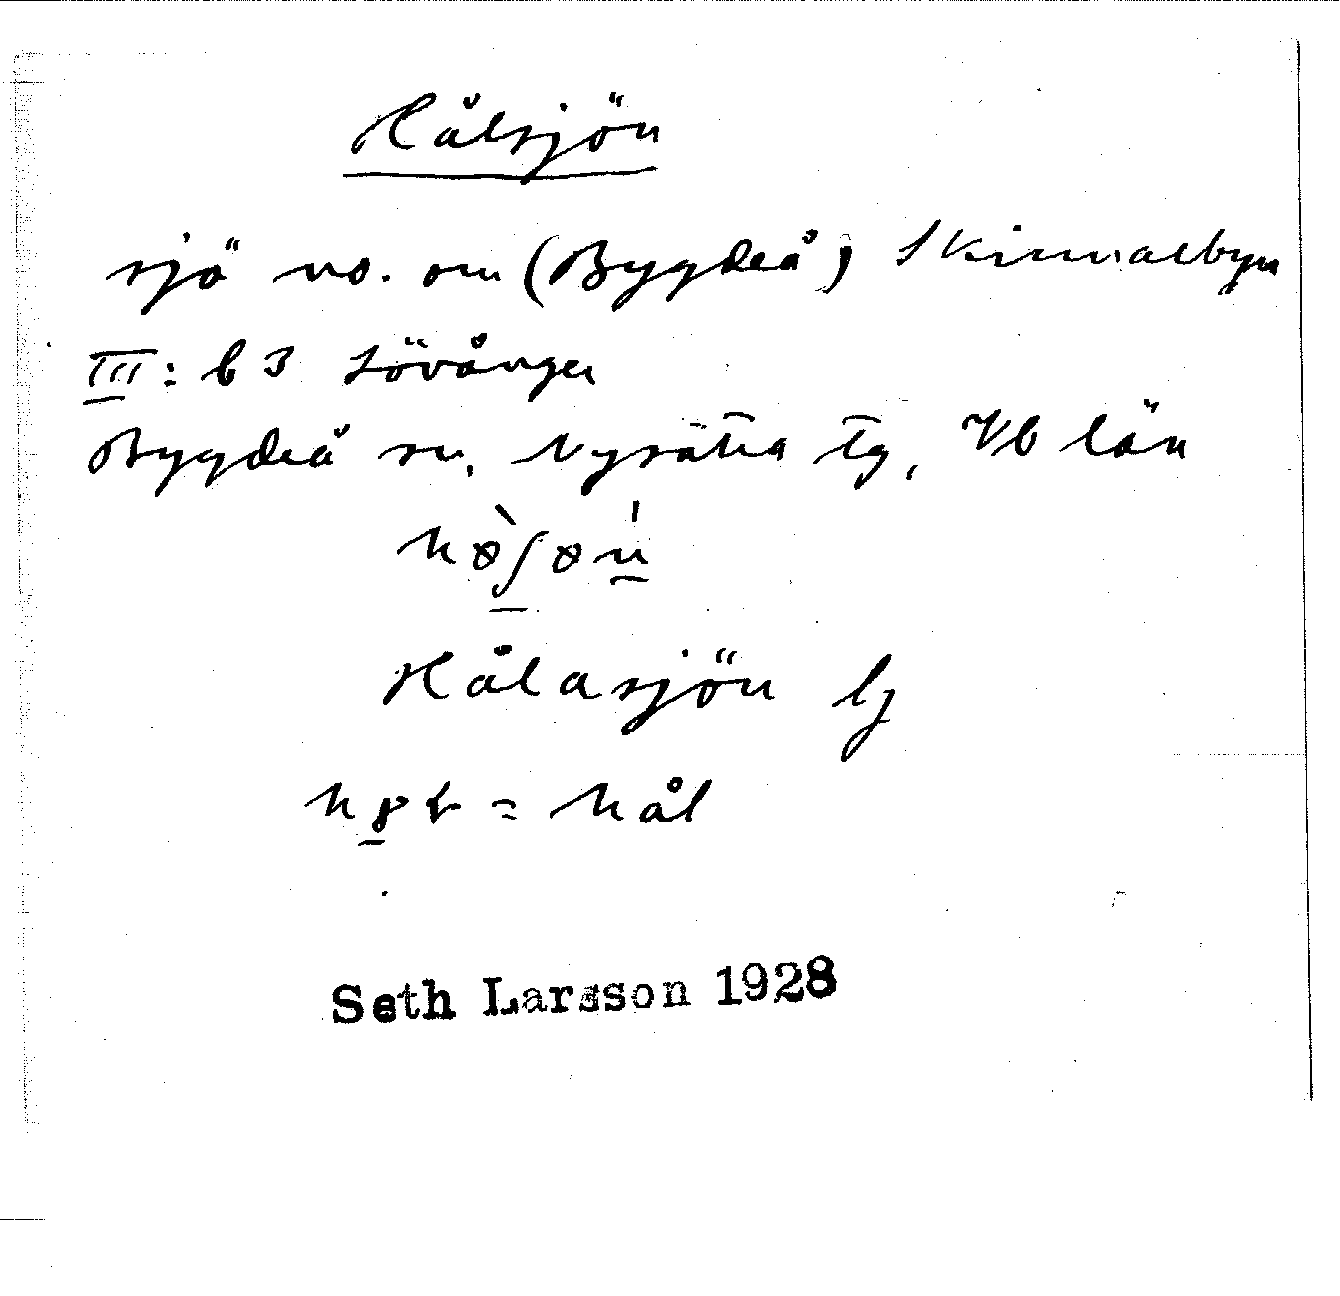 Hålsjön
sjö no. om (Bygdeå) Skinnarbyn
III: b 3 Lövånger
Bygdeå sn, Nysätra tg, Vb län
Hålasjön lj
= hål
Seth Larsson 1928